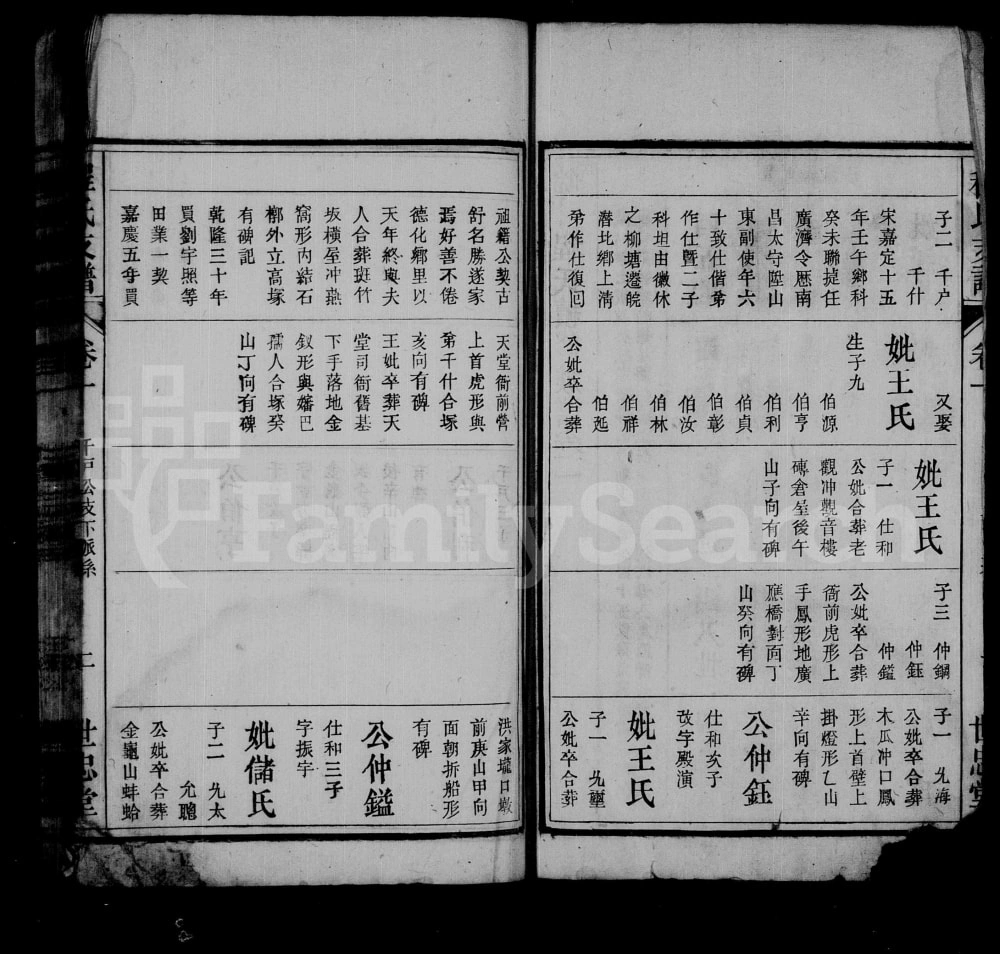 子二 千户
千什
宋嘉定十五
年壬午鄉科
癸未聯捷任
廣濟令歷南
昌太守陞山
東副使年六
十致仕偕弟
作仕暨二子
科坦由徽休
之柳塘遷皖
潛北鄉上清
弟作仕復回
又娶
妣王氏
生子九
伯源
伯亨
伯利
伯貞
伯彰
伯汝
伯林
伯祥
伯延
公妣卒合葬
妣王氏
子一 仕和
公妣合葬老
觀冲觀音樓
磚倉屋後午
山子向有碑
子三 仲鍋
仲鈺
仲鎰
公妣卒合葬
衙前虎形上
手鳳形地廣
應橋對面丁
山癸向有碑
子一 允海
公妣卒合葬
木瓜冲口鳳
形上首壁上
掛燈形乙山
辛向有碑
公仲鈺
仕和亥子
改字殿演
妣王氏
子一 允壐
公妣卒合葬
祖籍公契古
舒名勝遂家
焉好善不倦
德化鄉里以
天年終與夫
人合葬斑竹
坂橫屋冲燕
窩形內結石
槨外立高塚
有碑記
乾隆三十年
買劉宇熙等
田業一契
嘉慶五年買
天堂衙前營
上首虎形與
弟千什合塚
亥向有碑
王妣卒葬天
堂司衙舊基
下手落地金
釵形與嬸巴
孺人合塚癸
山丁向有碑
洪家壠口墩
前庚山甲向
面朝拆船形
有碑
公仲鎰
仕和三子
字振宇
妣儲氏
子二 允太
允聰
公妣卒合葬
金𪓰山蚌蛤
氏支譜
卷一
千户公支下派系
二
世忠堂